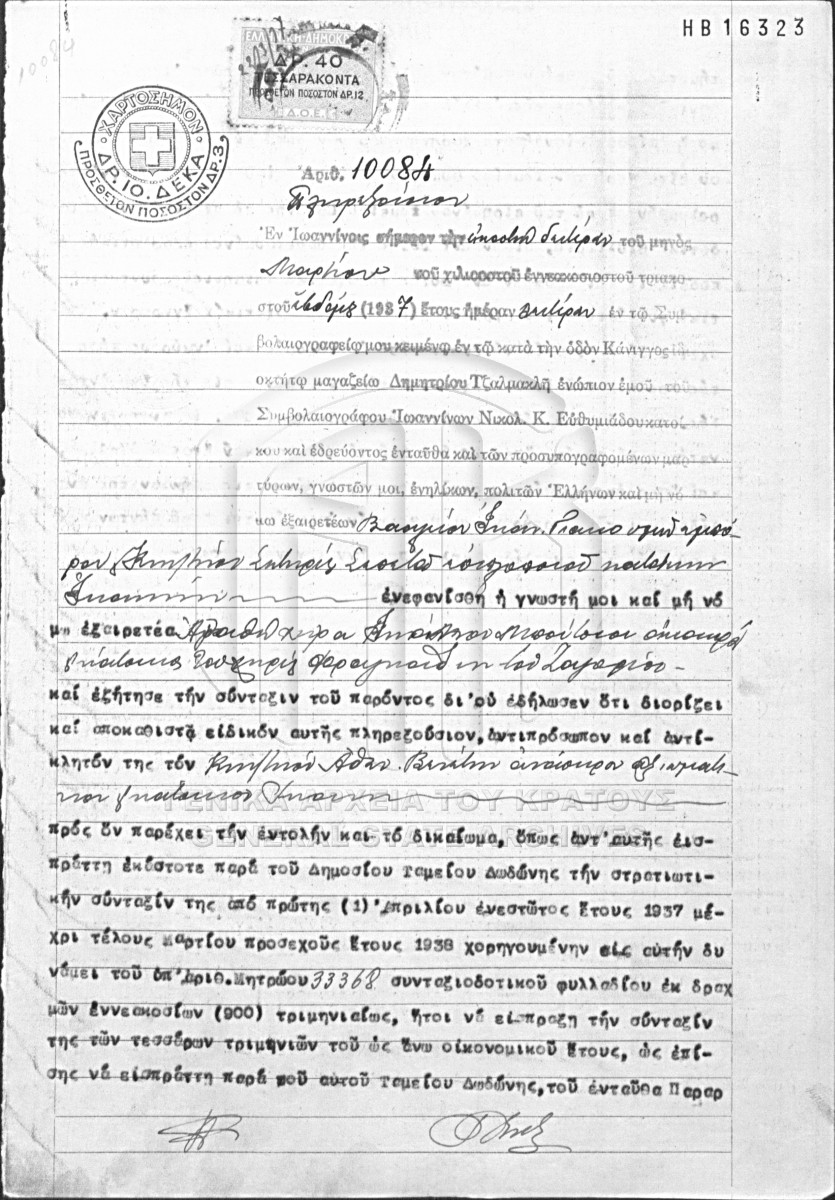 HB 16323
10084
ΕΛΛΗΝ. ΔΗΜΟΚΡ
ΔΡ. 40
ΤΕΣΣΑΡΑΚΟΝΤΑ
ΠΡΟΣΘΕΤΟΝ ΠΟΣΟΣΤΟΝ ΔΡ.12
Δ.Ο.Ε.
ΧΑΡΤΟΣΗΜΟΝ
ΔΡ. 10. ΔΕΚΑ
ΠΡΟΣΘΕΤΟΝ ΠΟΣΟΣΤΟΝ ΔΡ. 3
Ἀριθ. 10084
Πληρεξούσιον
Ἐν Ἰωαννίνοις σήμερον τὴν εἰκοστὴν δευτέραν τοῦ μηνὸς
Μαρτίου τοῦ χιλιοστοῦ ἐννεακοσιοστοῦ τριακο-
στοῦ ἑβδόμου (1937) ἔτους ἡμέραν Δευτέραν ἐν τῷ Συμ-
βολαιογραφείῳ μου κειμένῳ ἐν τῷ κατὰ τὴν ὁδὸν Κάνιγγος ἰδι
οκτήτῳ μαγαζείῳ Δημητρίου Τζαλμακλῆ ἐνώπιον ἐμοῦ τοῦ
Συμβολαιογράφου Ἰωαννίνων Νικολ. Κ. Εὐθυμιάδου κατοί
κου καὶ ἑδρεύοντος ἐνταῦθα καὶ τῶν προσυπογραφομένων μαρ
τύρων, γνωστῶν μοι, ἐνηλίκων, πολιτῶν Ἑλλήνων καὶ μὴ νό
μῳ ἐξαιρετέων Βασιλείου ἐμπό-
ρου
ἐνεφανίσθη ἡ γνωστή μοι καί μή νό
μῳ ἐξαιρετέα Ἀγαθὴ χήρα
καί ἐζήτησε τήν σύνταξιν τοῦ παρόντος δι'οὗ ἐδήλωσεν ὅτι διορίζει
καί ἀποκαθιστᾷ εἰδικόν αὐτῆς πληρεξούσιον, ἀντιπρόσωπον καί ἀντί-
κλητόν της τόν
ΓΕΝΙΚΑ ΑΡΧΕΙΑ ΤΟΥ ΚΡΑΤΟΥΣ
GENERAL STATE ARCHIVES
πρός ὅν παρέχει τήν ἐντολήν καί τό δικαίωμα, ὅπως ἀντ'αὐτῆς εἰσ-
πράττῃ ἑκάστοτε παρά τοῦ Δημοσίου Ταμείου Δωδώνης τήν στρατιωτι-
κήν σύνταξίν της ἀπό πρώτης (1) Ἀπριλίου ἐνεστῶτος ἔτους 1937 μέ-
χρι τέλους Μαρτίου προσεχοῦς ἔτους 1938 χορηγουμένην εἰς αὐτήν δυ
νάμει τοῦ ὑπ'ἀριθ.Μητρώου 33368 συνταξιοδοτικοῦ φυλλαδίου ἐκ δραχ
μῶν ἐννεακοσίων (900) τριμηνιαίως, ἤτοι νά εἰσπράξῃ τήν σύνταξίν
της τῶν τεσσάρων τριμηνιῶν τοῦ ὡς ἄνω οἰκονομικοῦ ἔτους, ὡς ἐπί-
σης νά εἰσπράττῃ παρά τοῦ αὐτοῦ Ταμείου Δωδώνης, τοῦ ἐνταῦθα Παραρ